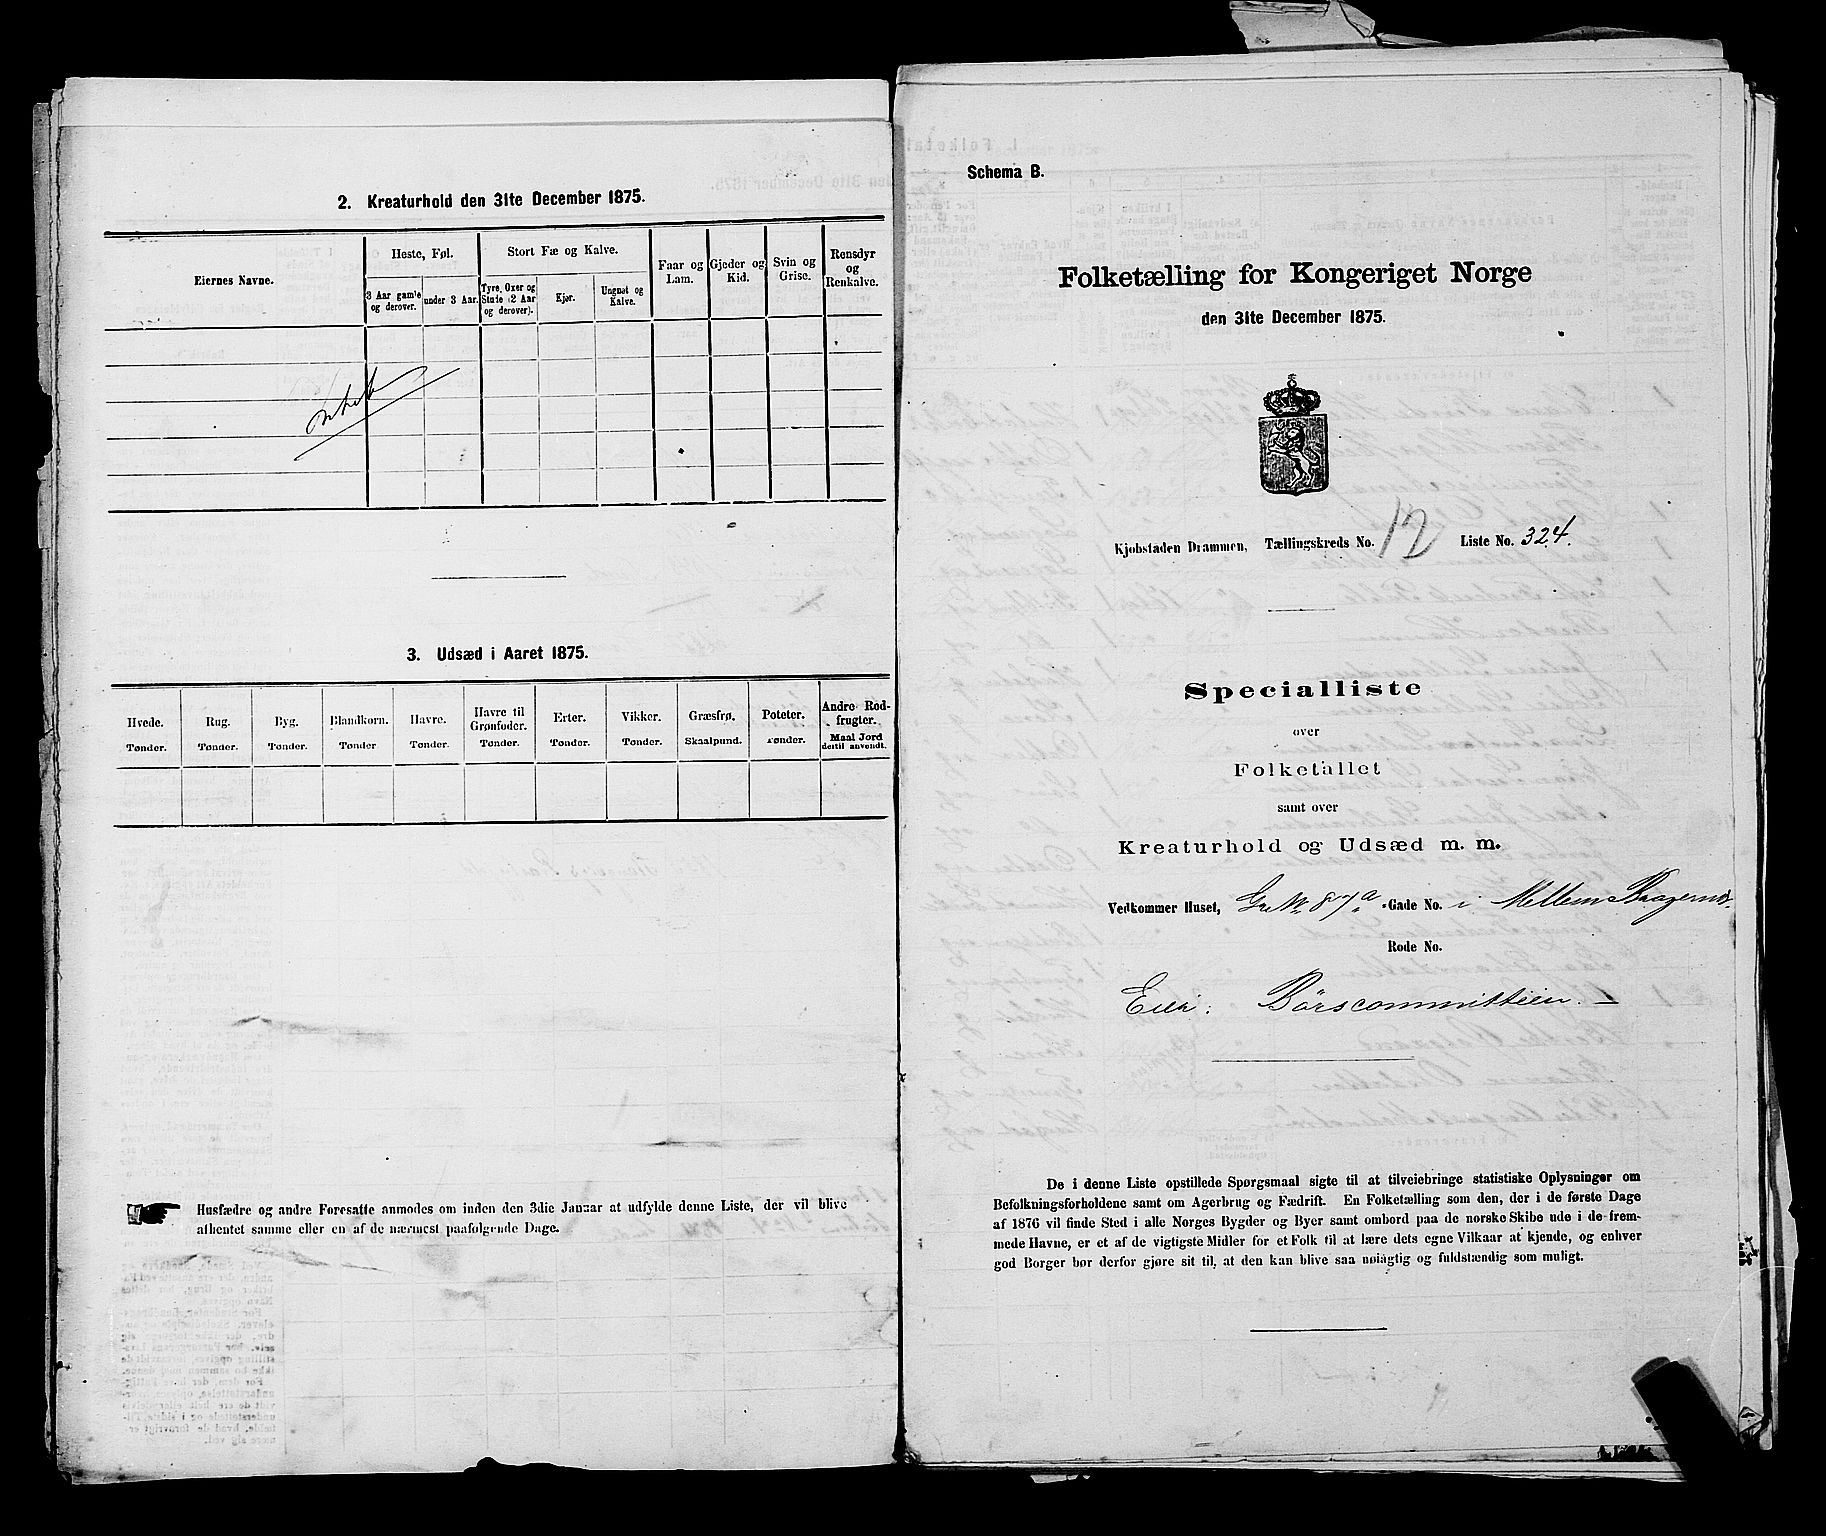 2. Kreaturhold den 31te December 1875.
Eiernes Navne.
Heste, Føl.
3 Aar gamle og derover.
under 3 Aar.
Stort Fæ og Kalve.
Tyre, Oxer og Stude (2 Aar og derover).
Kjør.
Ungnøt og Kalve.
Faar og Lam.
Gjeder og Kid.
Svin og Grise.
Rensdyr og Renkalve.
3. Udsæd i Aaret 1875.
Hvede. Tønder.
Rug. Tønder.
Byg. Tønder.
Blandkorn. Tønder
Havre. Tønder.
Havre til Grønfoder. Tønder.
Erter. Tønder.
Vikker. Tønder.
Græsfrø. Skaalpund.
Poteter. Tønder.
Andre Rodfrugter. Maal Jord dertil anvendt.
Husfædre og andre Foresatte anmodes om inden den 3die Januar at udfylde denne Liste, der vil blive
afhentet samme eller en af de nærmest paafølgende Dage.
Schema B.
Folketælling for Kongeriget Norge
den 31te December 1875.
Kjøbstaden Drammen, Tællingskreds No. 12 Liste No. 324.
Specialliste
over
Folketallet
samt over
Kreaturhold og Udsæd m. m.
Vedkommer Huset, Gr No 87a. Gade No. i Mellem Bragernæs
Rode No.
Eier: Börscommitteen.
De i denne Liste opstillede Spørgsmaal sigte til at tilveiebringe statistiske Oplysninger om
Befolkningsforholdene samt om Agerbrug og Fædrift. En Folketælling som den, der i de første Dage
af 1876 vil finde Sted i alle Norges Bygder og Byer samt ombord paa de norske Skibe ude i de frem-
mede Havne, er et af de vigtigste Midler for et Folk til at lære dets egne Vilkaar at kjende, og enhver
god Borger bør derfor gjøre sit til, at den kan blive saa nøiagtig og fuldstændig som muligt.